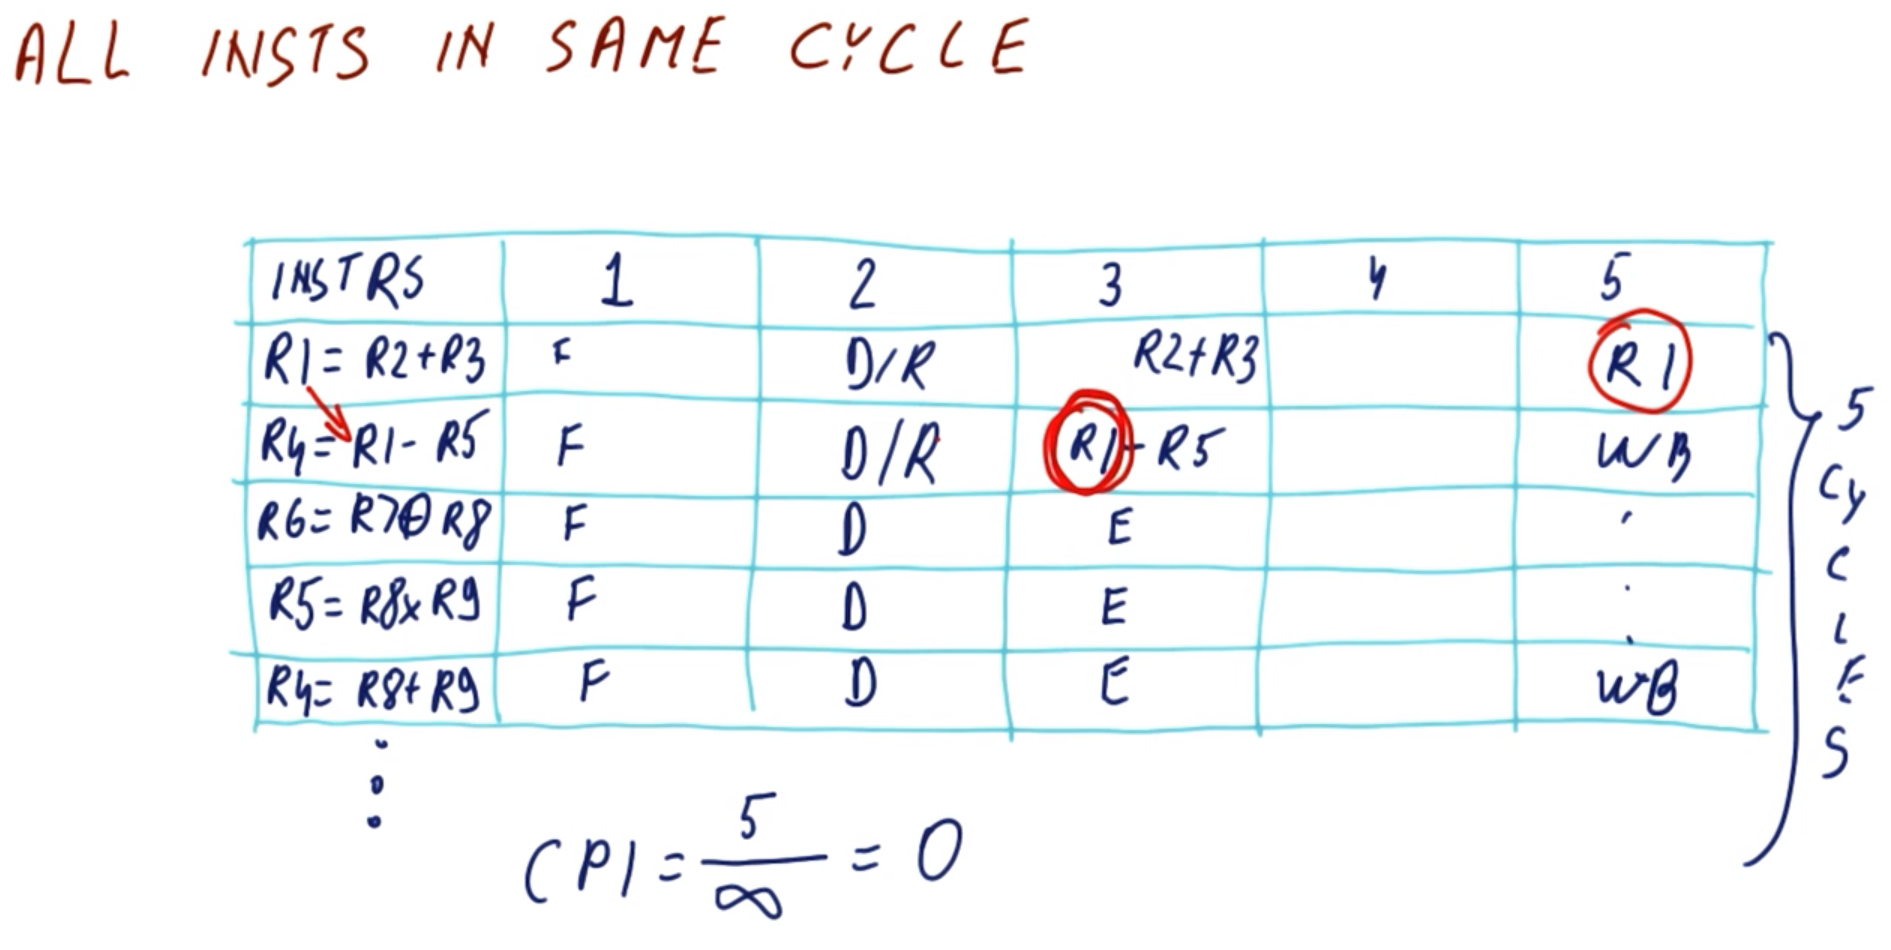 ALL INSTS IN SAME CYCLE
INSTRS 1 2 3 4 5
R1 = R2+R3 F D/R R2+R3 R1
R4 = R1 - R5 F D/R R1 - R5 WB
R6 = R7⊕R8 F D E
R5 = R8xR9 F D E
R4 = R8+R9 F D E WB
5 CYCLES
CPI = 5/∞ = 0